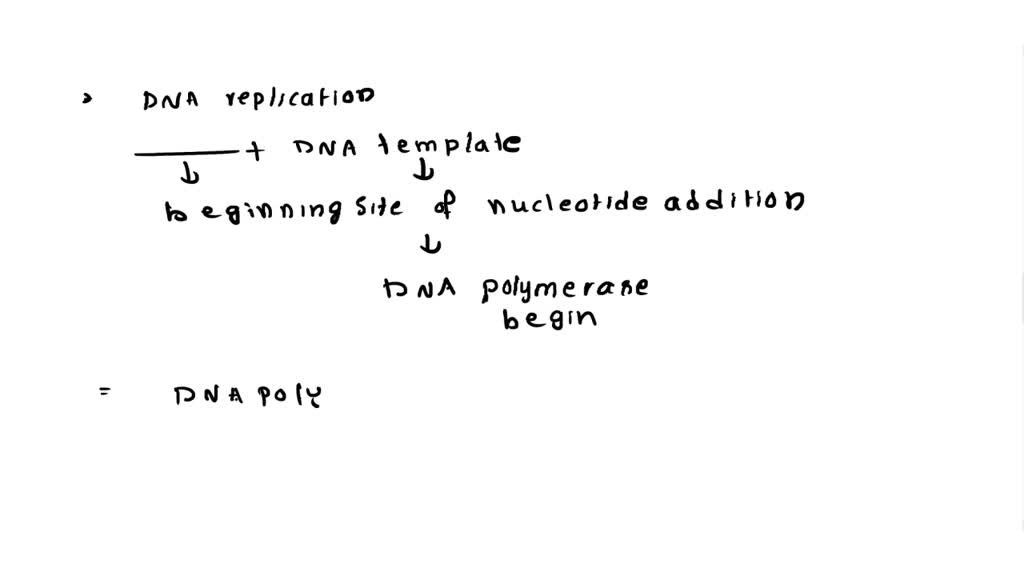 > DNA replication
_____ + DNA template
↓ ↓
beginning site of nucleotide addition
↓
DNA polymerase
begin
= DNA poly